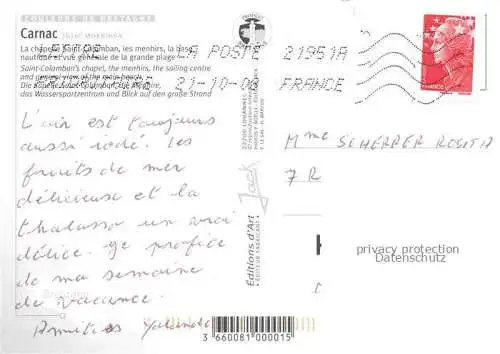 COULEURS DE BRETAGNE
Carnac 56340 MORBIHAN
La chapelle Saint-Colomban, les menhirs, la base
nautique et vue générale de la grande plage
Saint-Colomban's chapel, the menhirs, the sailing centre
and general view of the main beach
Die Kapelle Saint-Colomban, die Menhire,
das Wasserportzentrum und Blick auf den große Strand
LA POSTE 21951A
21-10-08 FRANCE
L'air est toujours
aussi iodé. les
fruits de mer
délicieuse et la
thalasso un vrai
délice. Je profite
de ma semaine
de vacance.
Amitiés Yolande
Jack
Editions d'Art
ÉDITEUR FABRICANT
Mme SCHERRER ROSITA
7 R
privacy protection
Datenschutz
3 660081 000015